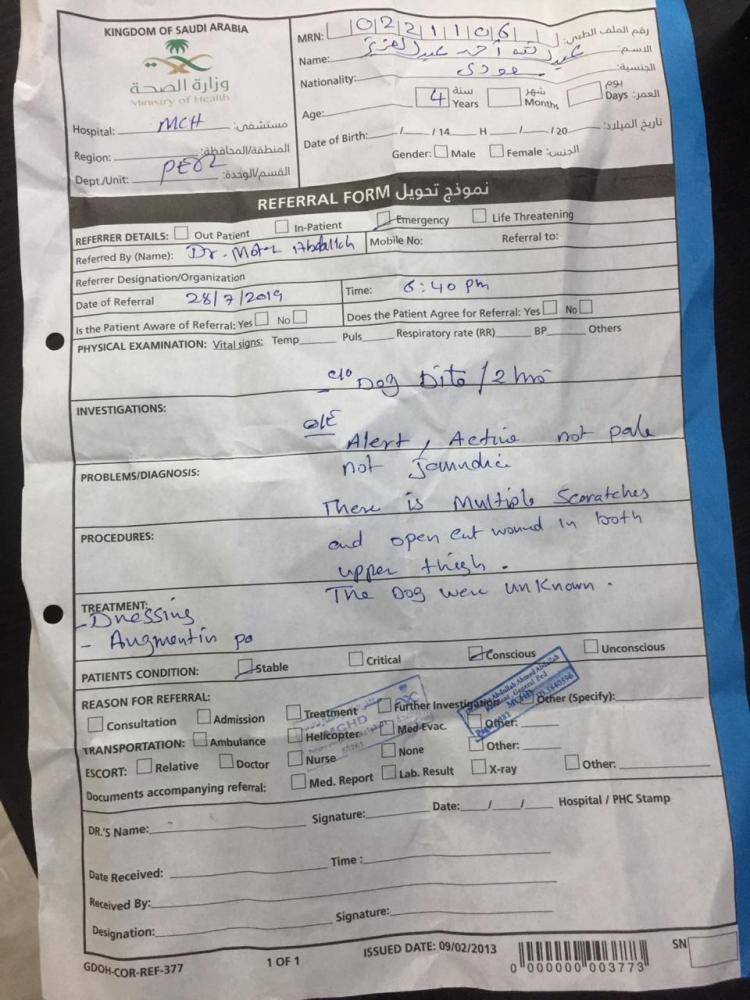 KINGDOM OF SAUDI ARABIA
وزارة الصحة
Ministry of Health
MRN: 0221106 رقم الملف الطبي:
Name: عبدالله أحمد عبدالعزيز الاسم:
Nationality: سعودي الجنسية:
Age: 4 سنة Years شهر Months يوم Days العمر:
Date of Birth: / /14 H / /20 تاريخ الميلاد:
Gender: Male Female الجنس:
Hospital: MCH مستشفى:
Region: المنطقة/المحافظة:
Dept/Unit: القسم/الوحدة:
REFERRAL FORM نموذج تحويل
REFERRER DETAILS: Out Patient In-Patient Emergency Life Threatening
Referred By (Name): Dr. Abdallah Mobile No: Referral to:
Referrer Designation/Organization
Date of Referral 28/7/2019 Time: 6:40 pm
Is the Patient Aware of Referral: Yes No Does the Patient Agree for Referral: Yes No
PHYSICAL EXAMINATION: Vital signs: Temp Puls Respiratory rate (RR) BP Others
c/o Dog Bite / 2 hrs
INVESTIGATIONS:
O/E
Alert, Active not pale
PROBLEMS/DIAGNOSIS:
not Jaundic
There is Multiple Scoratches
PROCEDURES:
and open cut wound in both
upper thigh.
The Dog were unknown.
TREATMENT:
- Dressing
- Augmentin po
PATIENTS CONDITION: Stable Critical Conscious Unconscious
REASON FOR REFERRAL:
Consultation Admission Treatment Further Investigation Other (Specify):
TRANSPORTATION: Ambulance Helicopter Med Evac. Other:
ESCORT: Relative Doctor Nurse None Other:
Documents accompanying referral: Med. Report Lab. Result X-ray Other:
MGHD
DR.'S Name: Signature: Date: / / Hospital / PHC Stamp
Date Received: Time :
Received By:
Designation: Signature:
GDOH-COR-REF-377 1 OF 1 ISSUED DATE: 09/02/2013 SN
0 000000 003773